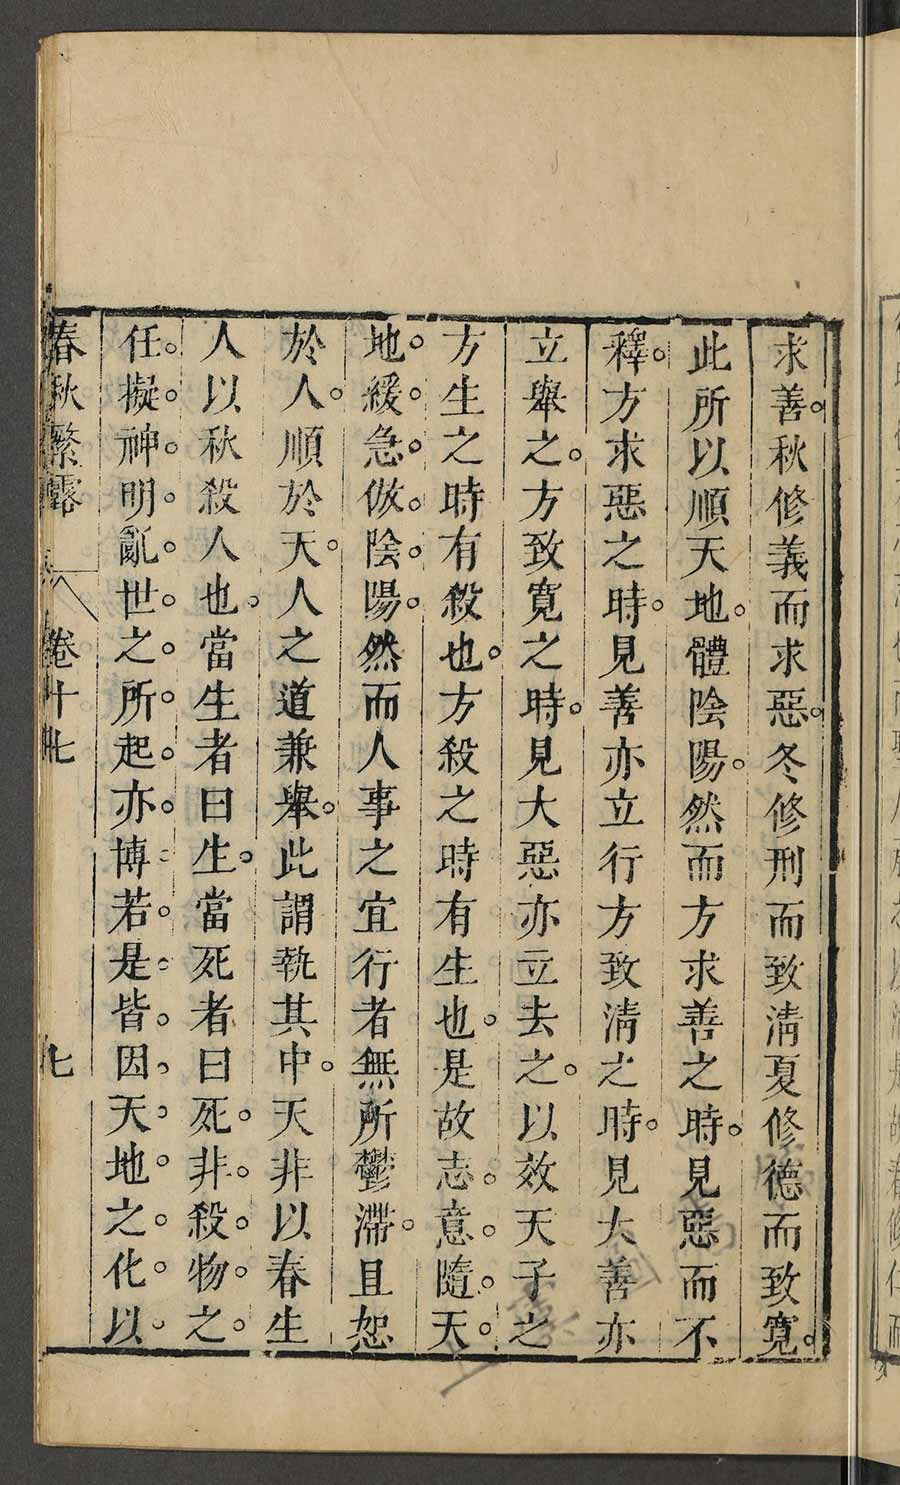 求善。秋修義而求惡。冬修刑而致清夏修德而致寬。
此所以順天地。體陰陽。然而方求善之時。見惡而不
釋。方求惡之時。見善亦立行方致清之時。見大善亦
立舉之。方致寬之時。見大惡亦立去之。以效天子之
方生之時有殺也。方殺之時有生也。是故志。意。隨。天。
地。緩。急。倣。陰。陽。然而人事之宜行者無所鬱滯。且恕
於人。順於天。人之道兼舉。此謂執其中。天非以春生
人以秋殺人也。當生者曰生。當死者曰死。非。殺。物。之。
任。擬。神。明。亂。世。之。所。起。亦。博。若。是。皆。因。天。地。之。化。以。
春秋繁露 卷十七 七